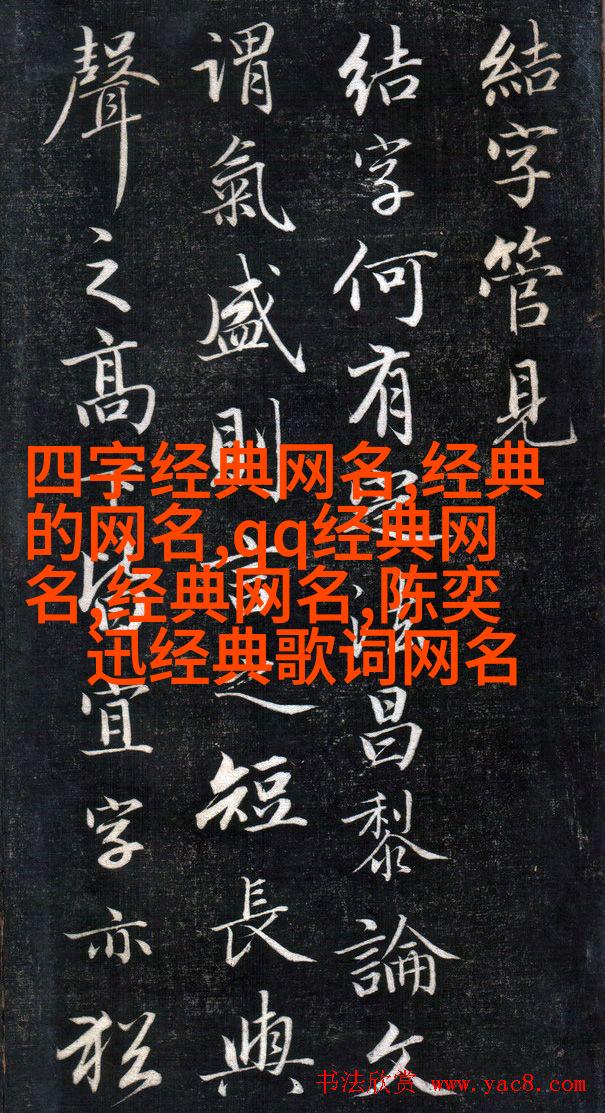 結字管見
结字何有定法昌黎論文
謂氣盛則言之短長與
聲之高下皆宜字亦猶
四字经典网名,经典
的网名,qq经典网
名,经典网名,陈奕
迅经典歌词网名
书法欣赏 www.yac8.com